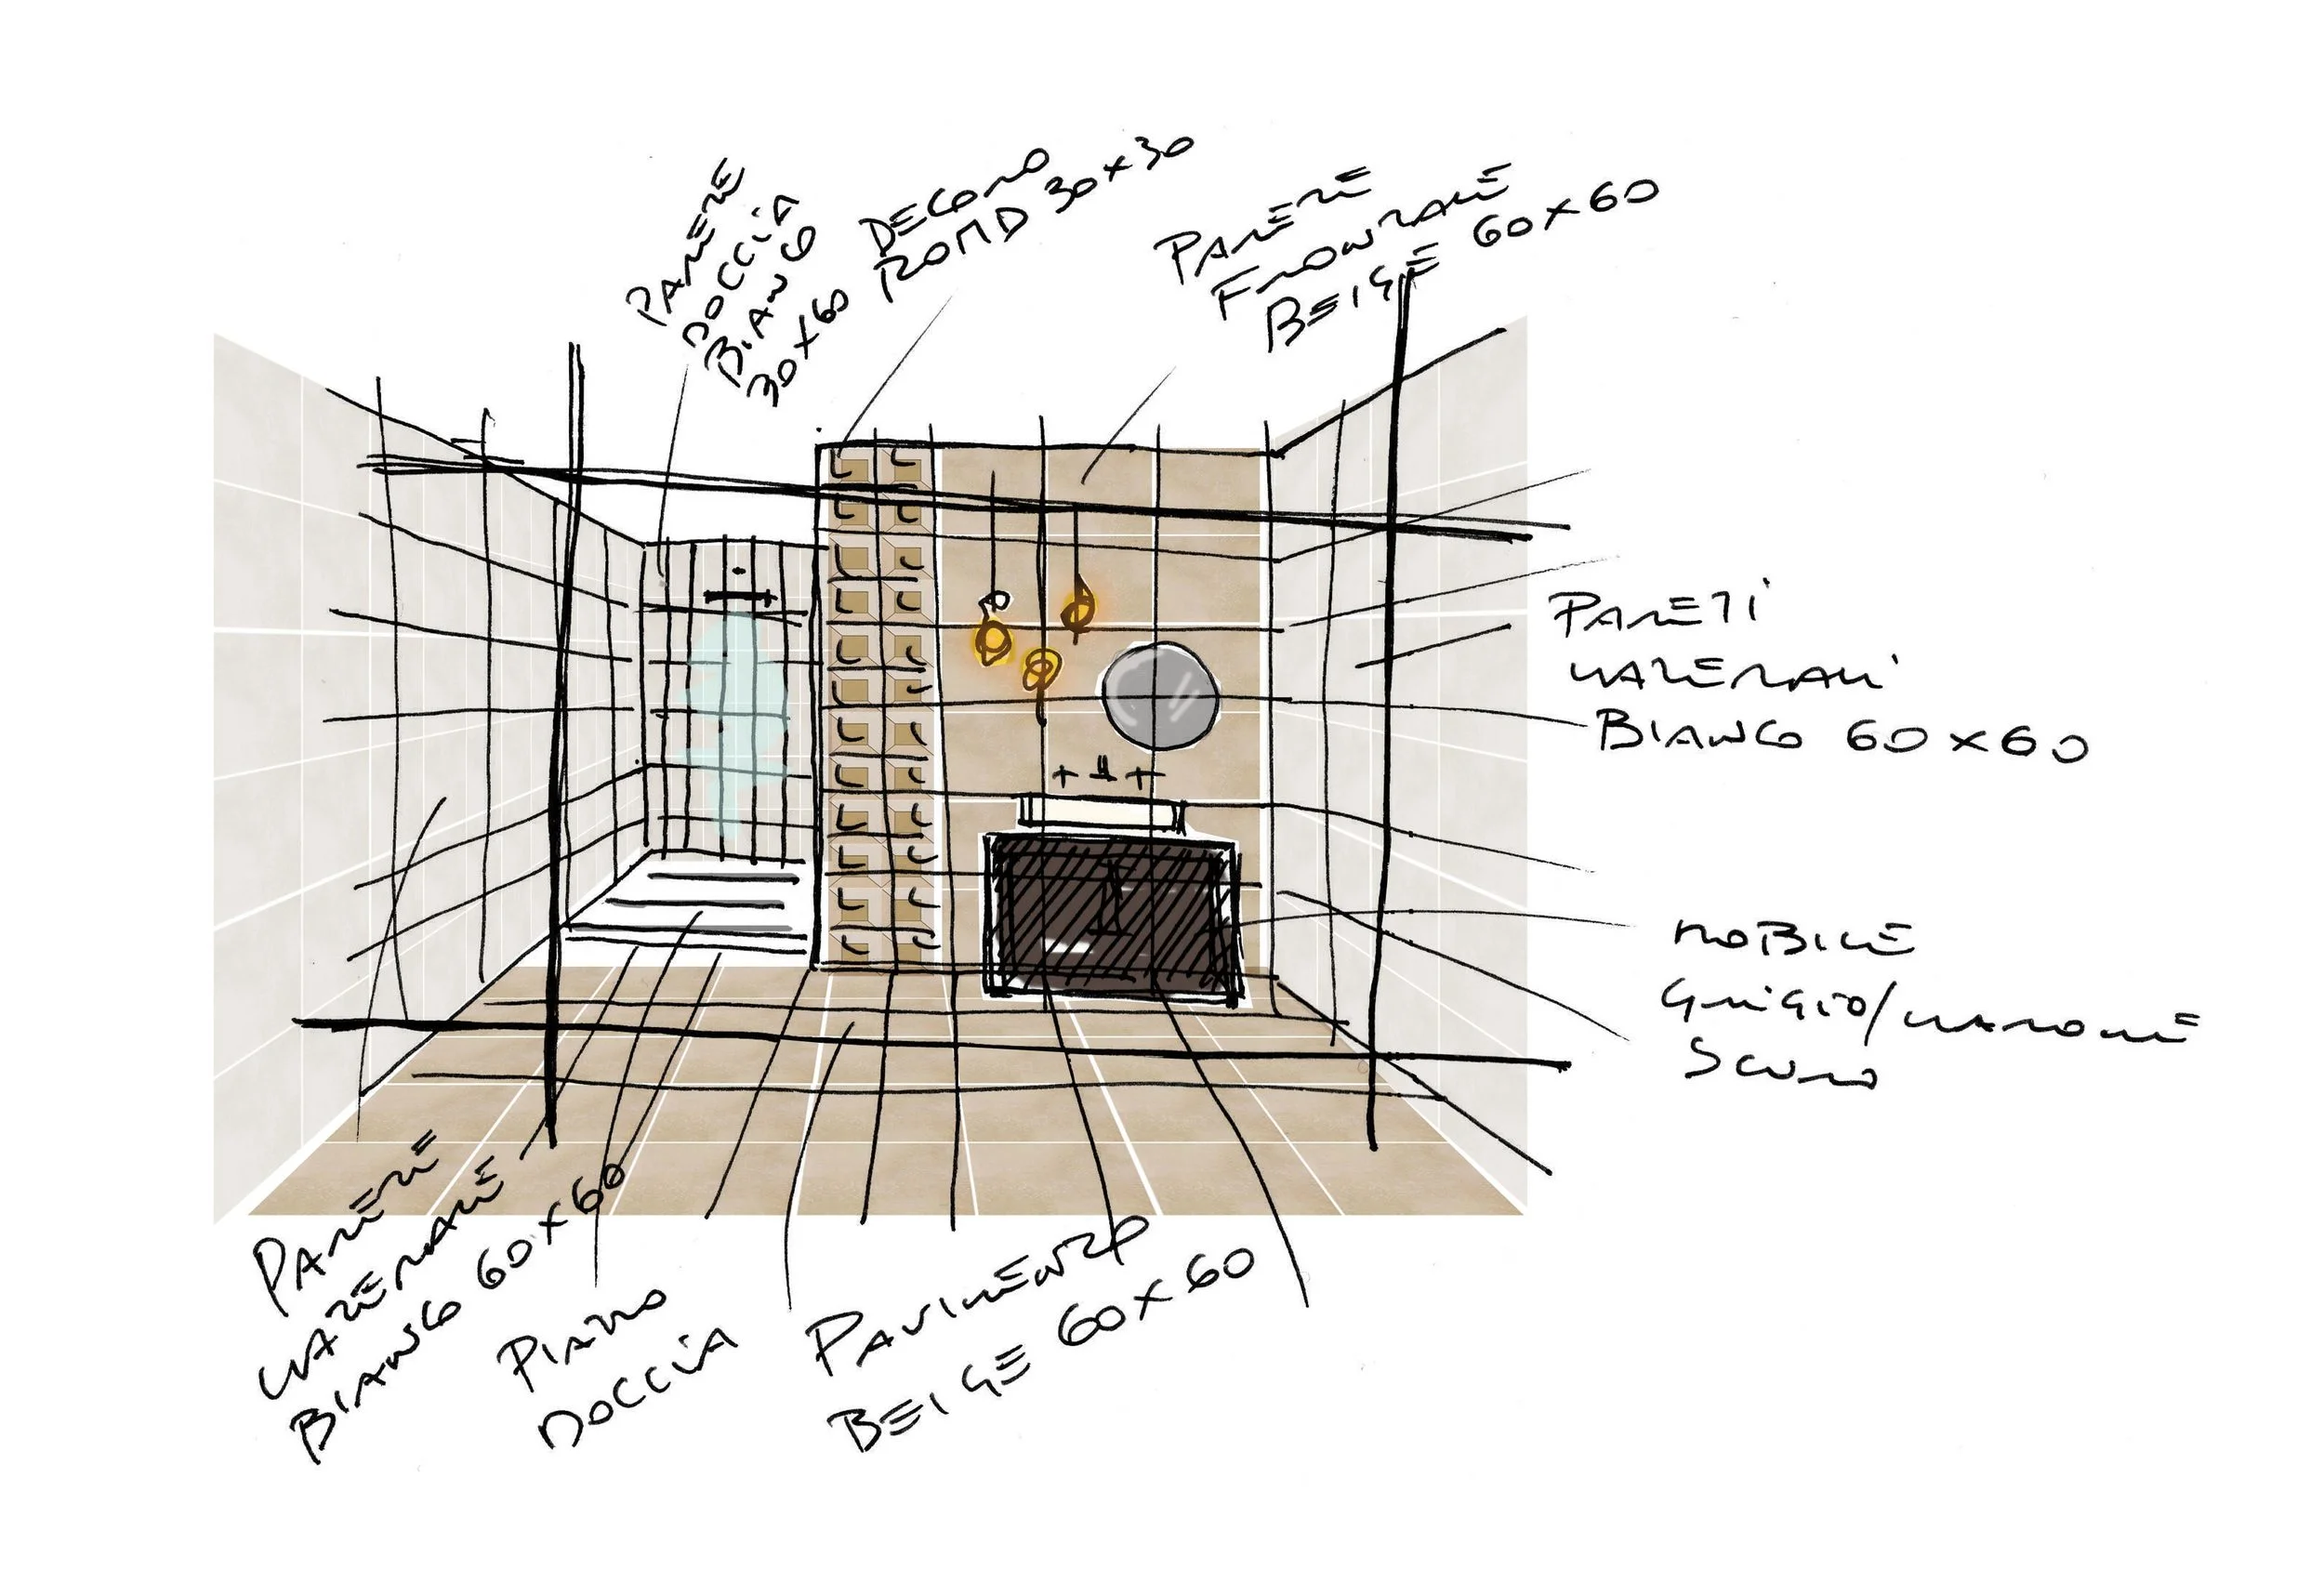 PARETE
DOCCIA
BIANCO
30X60
DECORO
ROMD 30x30
PARETE
FRONTALE
BEIGE 60x60
PARETI
LATERALI
BIANCO 60x60
MOBILE
GRIGIO/MARONE
SCURO
PARETE
LATERALE
BIANCO 60x60
PIATTO
DOCCIA
PAVIMENTO
BEIGE 60x60